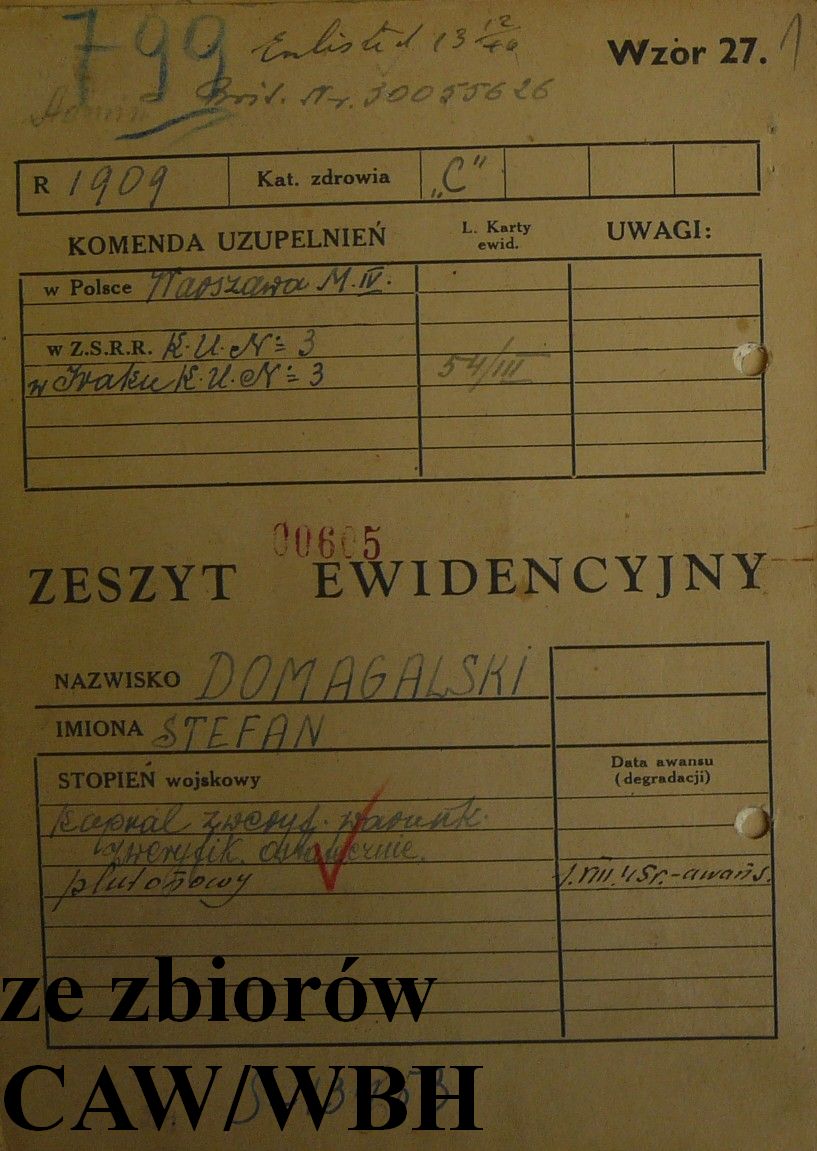 799 Enlisted 13 12/46 Wzór 27. 1
Brit. Nr. 30055626
R 1909 Kat. zdrowia „C”
KOMENDA UZUPEŁNIEŃ L. Karty ewid. UWAGI:
w Polsce Warszawa M. IV.
w Z.S.R.R. K. U. № 3
w Iraku K. U. № 3 54/III
00605
ZESZYT EWIDENCYJNY
NAZWISKO DOMAGALSKI
IMIONA STEFAN
STOPIEŃ wojskowy Data awansu (degradacji)
kapral zweryf. warunk.
zweryfik. ostatecznie.
plutonowy 1.VIII.45r.-awans.
ze zbiorów
CAW/WBH